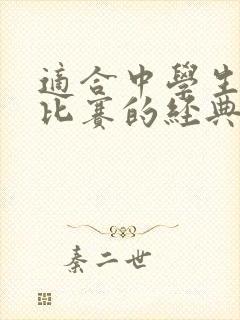 適合中學生
比賽的經典
秦二世